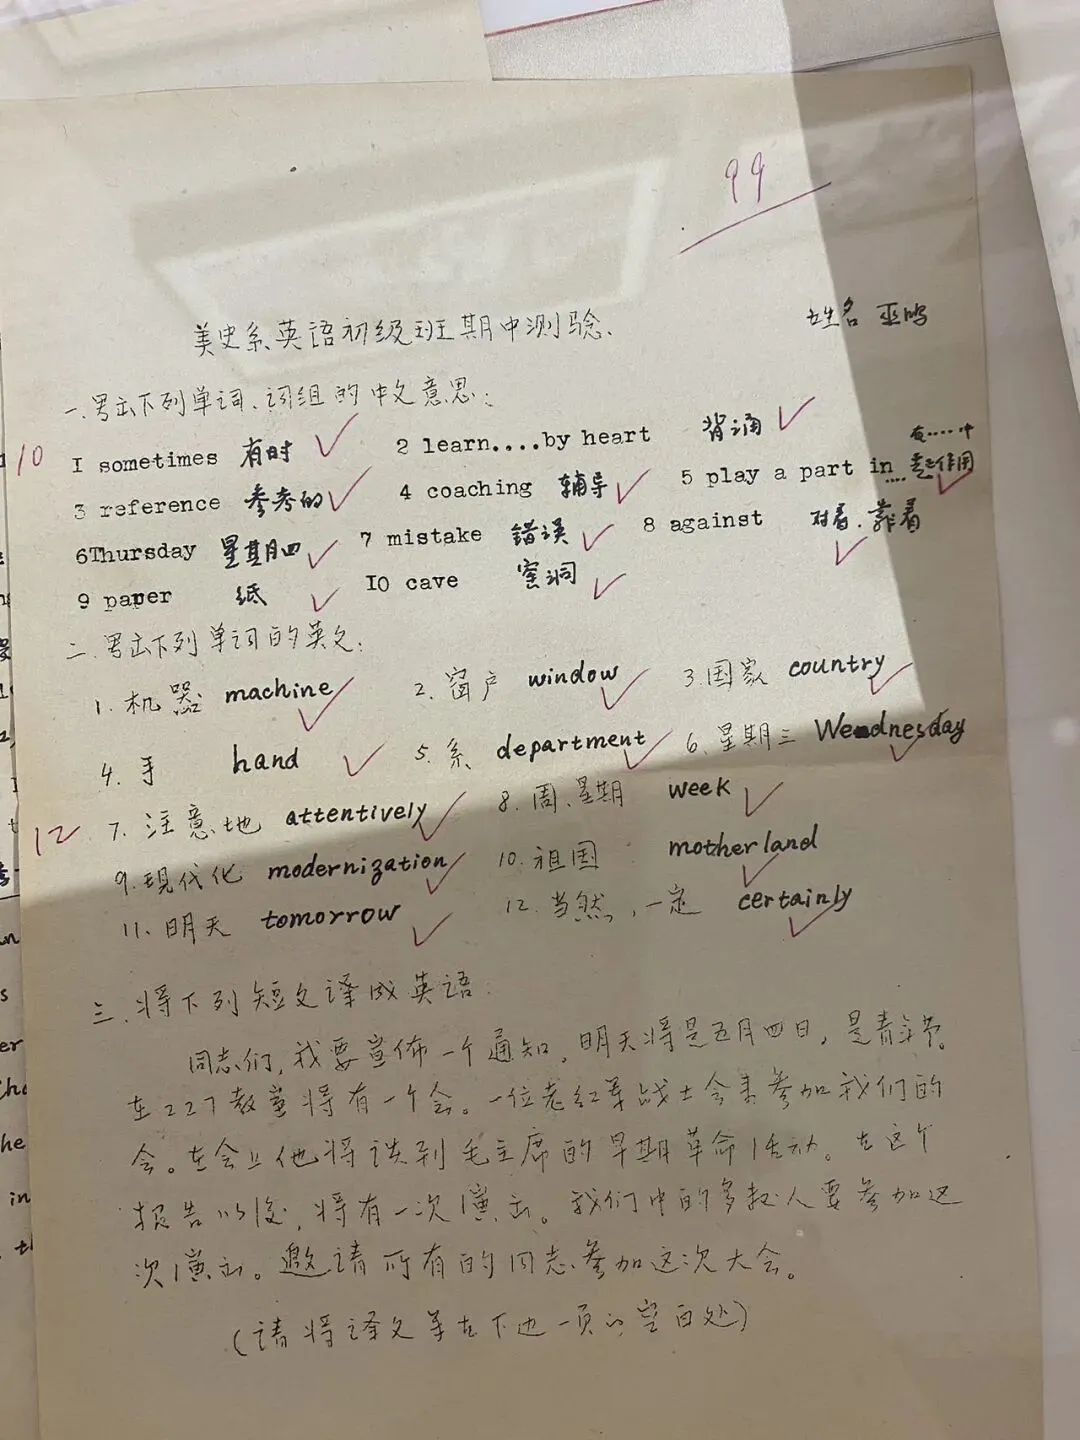 99
美史系英语初级班期中测验、
姓名 巫鸿
一.写出下列单词、词组的中文意思:
10
1 sometimes 有时 2 learn....by heart 背诵
3 reference 参考的 4 coaching 辅导 5 play a part in.... 在……中起作用
6Thursday 星期四 7 mistake 错误 8 against 对着、靠着
9 paper 纸 10 cave 窑洞
二.写出下列单词的英文:
1.机器 machine 2.窗户 window 3.国家 country
4.手 hand 5.系 department 6.星期三 Wednesday
12
7.注意地 attentively 8.周、星期 week
9.现代化 modernization 10.祖国 motherland
11.明天 tomorrow 12.当然,一定 certainly
三.将下列短文译成英语:
同志们,我要宣佈一个通知。明天将是五月四日,是青年节。
在227教室将有一个会。一位老红军战士会来参加我们的
会。在会上他将谈到毛主席的早期革命活动。在这个
报告以后,将有一次演出。我们中的多数人要参加这
次演出。邀请所有的同志参加这次大会。
(请将译文写在下边一页的空白处)